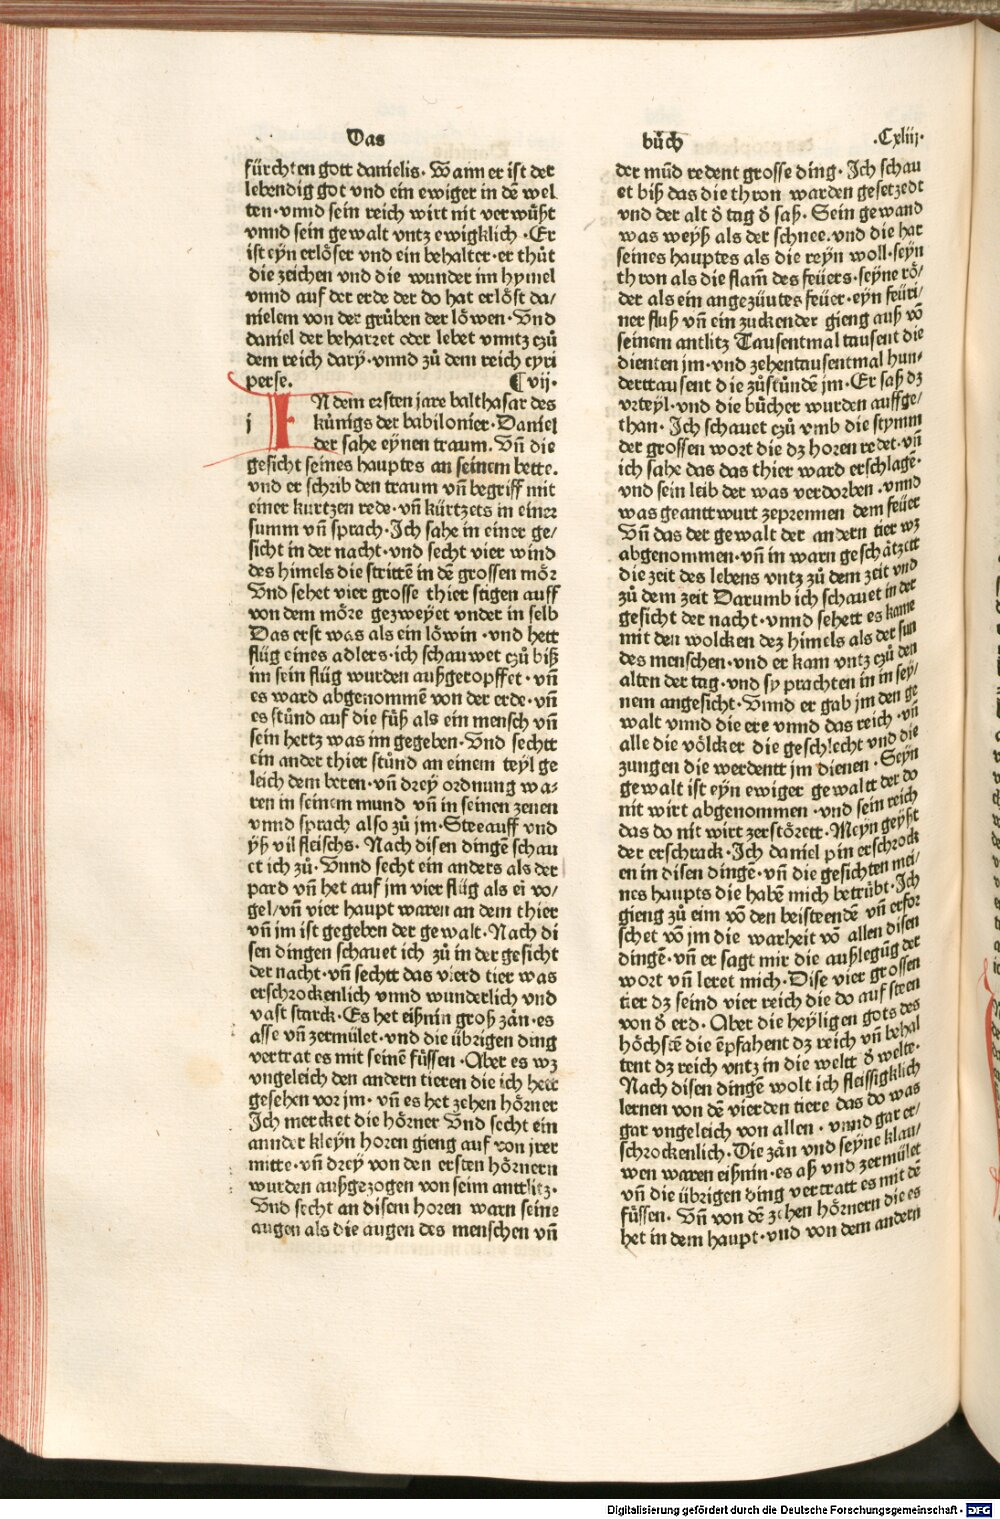 Das
bůch
.Cxliij.
fürchten gott danielis. Wann er ist der
lebendig got vnd ein ewiger in dē wel
ten·vnnd sein reich wirt nit verwůßt
vnnd sein gewalt vntz ewigklich ·Er
ist eyn erlöser vnd ein behalter·er thůt
die zeichen vnd die wunder im hymel
vnnd auf der erde der do hat erlöst da/
nielem von der grůben der löwen·Vnd
daniel der beharret oder lebet vnntz czů
dem reich darÿ·vnnd zů dem reich cyri
perse. ¶vij.
IN dem ersten jare balthasar des
j künigs der babilonier·Daniel
der sahe eynen traum. Vñ die
gesicht seines hauptes an seinem bette.
vnd er schrib den traum vñ begriff mit
einer kurtzen rede·vñ kürtzets in einer
summ vñ sprach·Ich sahe in einer ge/
sicht in der nacht·vnd secht vier wind
des himels die strittē in dē grossen mör
Vnd sehet vier grosse thier stigen auff
von dem möre gezweyet vnder in selb
Das erst was als ein löwin ·vnd hett
flüg eines adlers·ich schauwet czů biß
im sein flüg wurden außgeropffet·vñ
es ward abgenommē von der erde·vñ
es stůnd auf die füß als ein mensch vñ
sein hertz was im gegeben·Vnd sechtt
ein ander thier stůnd an einem teyl ge
leich dem beren·vñ dreÿ ordnung wa-
ren in seinem mund vñ in seinen zenen
vnnd sprach also zů jm·Steeauff vnd
yß vil fleischs. Nach disen dingē schau
et ich zů·Vnnd secht ein anders als der
pard vñ het auf jm vier flüg als eī vo/
gel/vñ vier haupt waren an dem thier
vñ jm ist gegeben der gewalt·Nach di
sen dingen schauet ich zů in der gesicht
der nacht·vñ sechtt das vierd tier was
erschrockenlich vnnd wunderlich vnd
vast starck·Es het eißnin groß zän·es
asse vñ zermület·vnd die übrigen ding
vertrat es mit seinē füssen ·Aber es wz
vngeleich den andern tieren die ich hett
gesehen vor jm· vñ es het zehen hörner
Ich mercket die hörner Vnd secht ein
annder kleyn horen gieng auf von jrer
mitte·vñ dreÿ von den ersten hörnern
wurden außgezogen von seim anttlitz·
Vnd secht an disem horen warn seine
augen als die augen des menschen vñ
der mūd redent grosse ding· Ich schau
et biß das die thron warden gesetzedt
vnd der alt d̕ tag d̕ saß· Sein gewand
was weyß als der schnee.vnd die har
seines hauptes als die reyn woll·seyn
thron als die flam̄ des feüers·seyne rö/
der als ein angezüntes feüer·eyn feüri/
ner fluß vñ ein zuckender gieng auß vō
seinem antlitz Tausentmal tausent die
dienten jm·vnd zehentausentmal hun-
derttausent die zůstůndē jm·Er saß dz
vrteyl·vnd die bücher wurden auffge/
than· Ich schauet czů vmb die stymm
der grossen wort die dz horen redet·vñ
ich sahe das das thier ward erschlagē·
vnd sein leib der was verdorben ·vnnd
was geanttwurt zeprennen dem feüer
Vñ das der gewalt der andern tier wz
abgenommen·vñ in warn geschätzett
die zeit des lebens vntz zů dem zeit vnd
zů dem zeit Darumb ich schauet in der
gesicht der nacht·vnnd sehett es kame
mit den wolcken dez himels als der sun
des menschen·vnd er kam vntz czů den
alten der tag·vnd sy prachten in in sey/
nem angesicht·Vnnd er gab jm den ge
walt vnnd die ere vnnd das reich ·vñ
alle die völcker die geschlecht vnd die
zungen die werdentt jm dienen · Seyn
gewalt ist eyn ewiger gewaltt der do
nit wirt abgenommen ·vnd sein reich
das do nit wirt zerstörett·Meyn geyßt
der erschrack·Ich daniel pin erschrock
en in disen dingē·vñ die gesichten mei/
nes haupts die habē mich betrübt·Ich
gieng zů eim vō den beisteendē vñ erfor
schet vō jm die warheit vō allen disen
dingē·vñ er sagt mir die außlegūg der
wort vñ leret mich·Dise vier grossen
tier dz seind vier reich die do auf steen
von d̕ erd· Aber die heyligen gots des
höchstē die ēpfahent dz reich vñ behal
tent dz reich vntz in die weltt d̕ welte.
Nach disen dingē wolt ich fleissigklich
lernen von dē vierden tiere das do was
gar vngeleich von allen · vnnd gar er/
schrockenlich·Die zän vnd seyne klau/
wen waren eißnin·es aß vnd zermület
vñ die übrigen ding vertratt es mit dē
füssen· Vñ von dē zehen hörnern die es
het in dem haupt·vnd von dem andern
Digitalisierung gefördert durch die Deutsche Forschungsgemeinschaft - DFG